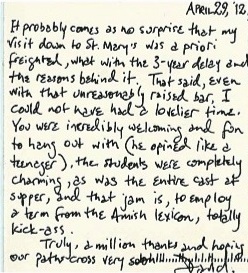 APRIL 29, '12.
It probably comes as no surprise that my
visit down to St. Mary's was a priori
freighted, what with the 3-year delay and
the reasons behind it. That said, even
with that unreasonably raised bar, I
could not have had a lovelier time.
You were incredibly welcoming and fun
to hang out with (he opined like a
teenager), the students were completely
charming, as was the entire cast at
supper, and that jam is, to employ
a term from the Amish lexicon, totally
kick-ass.
Truly, a million thanks and hoping
our paths cross very